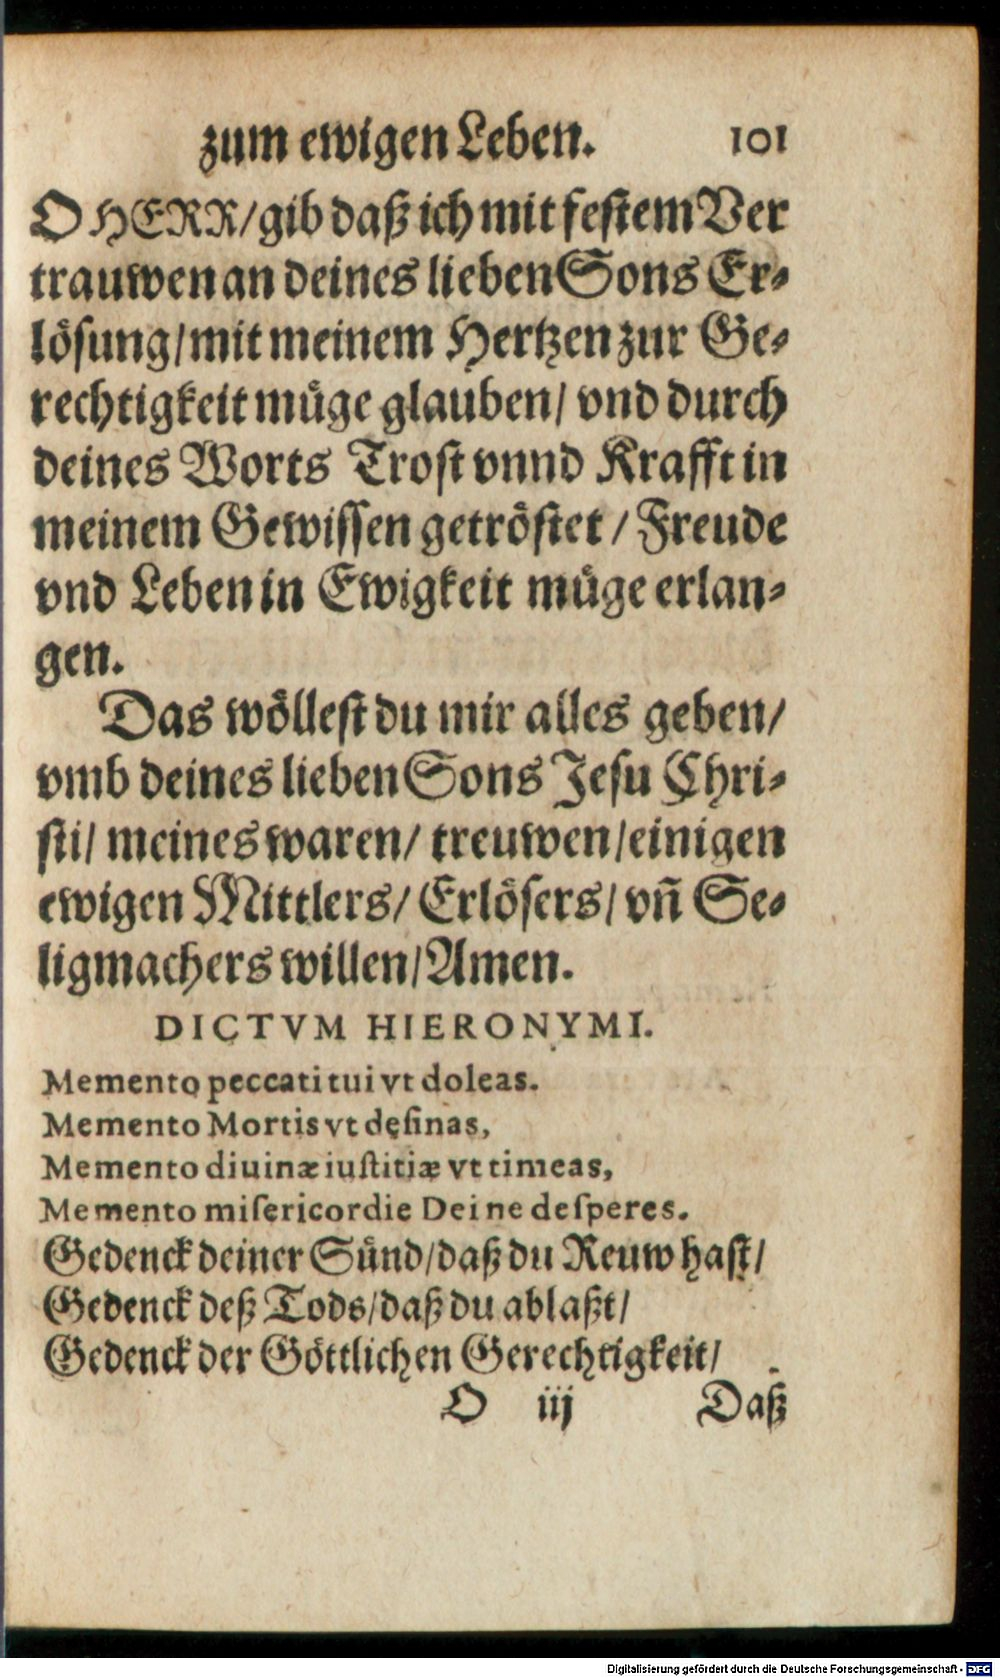 zum ewigen Leben. 101
O HERR/gib daß ich mit festem Ver
trauwen an deines lieben Sons Er-
lösung/mit meinem Hertzen zur Ge-
rechtigkeit müge glauben/ vnd durch
deines Worts Trost vnnd Krafft in
meinem Gewissen getröstet / Freude
vnd Leben in Ewigkeit müge erlan-
gen.
Das wöllest du mir alles geben/
vmb deines lieben Sons Jesu Chri-
sti/ meines waren/ treuwen/einigen
ewigen Mittlers/ Erlösers/ vn̄ Se-
ligmachers willen/Amen.
DICTVM HIERONYMI.
Memento peccati tui vt doleas.
Memento Mortis vt desinas,
Memento diuinæ iustitiæ vt timeas,
Memento misericordie Dei ne desperes.
Gedenck deiner Sünd/daß du Reuw hast/
Gedenck deß Tods/daß du ablaßt/
Gedenck der Göttlichen Gerechtigkeit/
O iij Daß
Digitalisierung gefördert durch die Deutsche Forschungsgemeinschaft - DFG